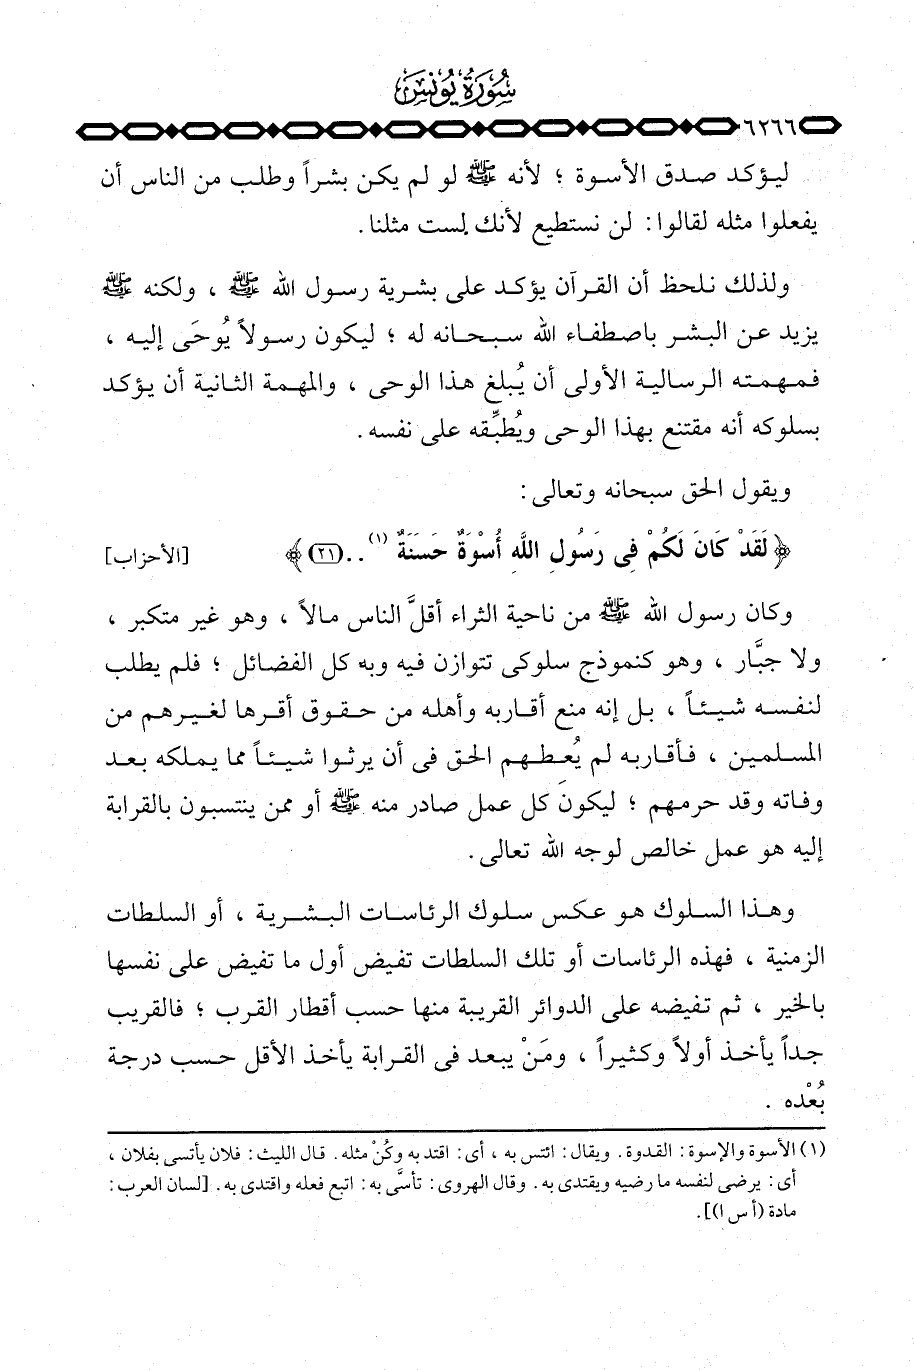 سُورَةُ يُونُسَ
٦٢٦٦
ليؤكد صدق الأسوة ؛ لأنه ﷺ لو لم يكن بشراً وطلب من الناس أن
يفعلوا مثله لقالوا : لن نستطيع لأنك لست مثلنا .
ولذلك نلحظ أن القرآن يؤكد على بشرية رسول الله ﷺ ، ولكنه ﷺ
يزيد عن البشر باصطفاء الله سبحانه له ؛ ليكون رسولاً يُوحَى إليه ،
فمهمته الرسالية الأولى أن يُبلغ هذا الوحى ، والمهمة الثانية أن يؤكد
بسلوكه أنه مقتنع بهذا الوحى ويُطبِّقه على نفسه .
ويقول الحق سبحانه وتعالى :
﴿ لَقَدْ كَانَ لَكُمْ فِى رَسُولِ اللَّهِ أُسْوَةٌ حَسَنَةٌ (١) .. (٢١) ﴾ [الأحزاب]
وكان رسول الله ﷺ من ناحية الثراء أقلَّ الناس مالاً ، وهو غير متكبر ،
ولا جبَّار ، وهو كنموذج سلوكى تتوازن فيه وبه كل الفضائل ؛ فلم يطلب
لنفسه شيئاً ، بل إنه منع أقاربه وأهله من حقوق أقرها لغيرهم من
المسلمين ، فأقاربه لم يُعطِهم الحق فى أن يرثوا شيئاً مما يملكه بعد
وفاته وقد حرمهم ؛ ليكون كل عمل صادر منه ﷺ أو ممن ينتسبون بالقرابة
إليه هو عمل خالص لوجه الله تعالى .
وهذا السلوك هو عكس سلوك الرئاسات البشرية ، أو السلطات
الزمنية ، فهذه الرئاسات أو تلك السلطات تفيض أول ما تفيض على نفسها
بالخير ، ثم تفيضه على الدوائر القريبة منها حسب أقطار القرب ؛ فالقريب
جداً يأخذ أولاً وكثيراً ، ومَنْ يبعد فى القرابة يأخذ الأقل حسب درجة
بُعْده .
(١) الأسوة والإسوة : القدوة . ويقال : ائتس به ، أى : اقتد به وكُنْ مثله . قال الليث : فلان يأتسى بفلان ،
أى : يرضى لنفسه ما رضيه ويقتدى به . وقال الهروى : تأسَّى به : اتبع فعله واقتدى به . [لسان العرب :
مادة (أ س ا)] .